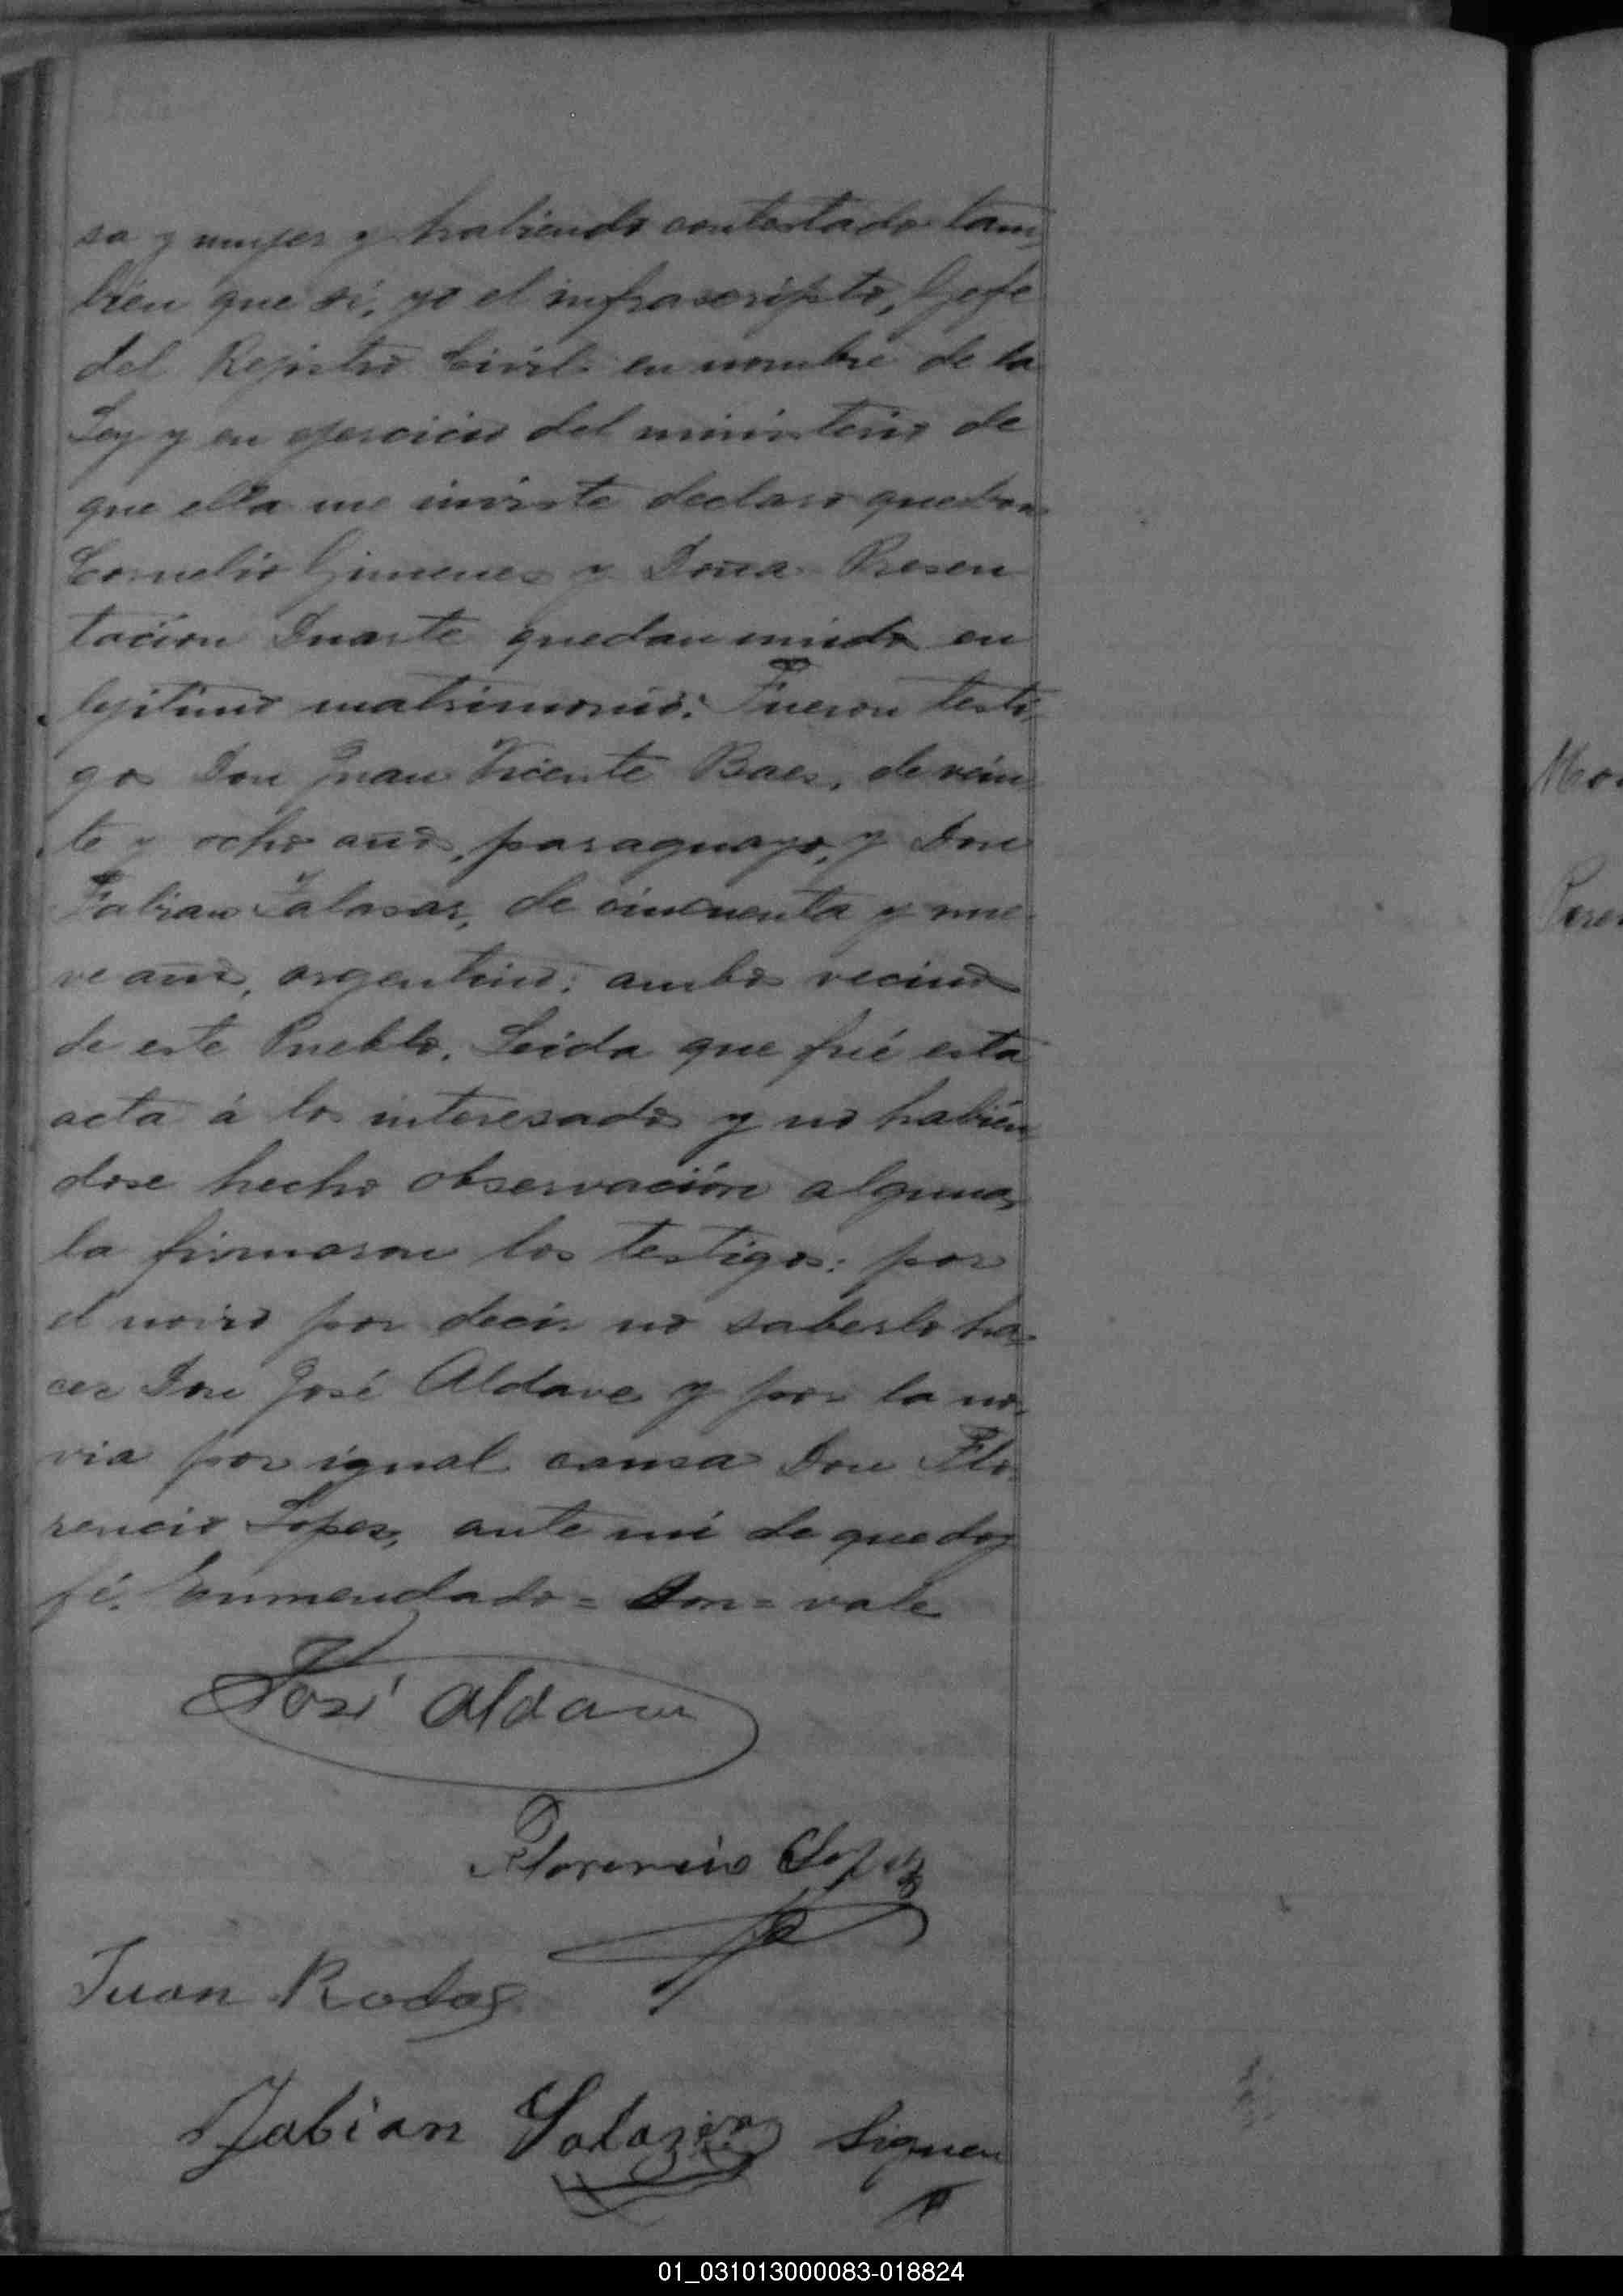 sa y mujer y habiendo contestado tam-
bien que sí, yo el infrascripto, Gefe
del Rejistro Civil en nombre de la
Ley y en ejercicio del ministerio de
que ella me inviste declaro que Don
Cornelio Gimenes y Doña Presen
tación Duarte quedan unidos en
lejitimo matrimonio. Fueron testi-
gos Don Juan Vicente Baes, de vein
te y ocho años, paraguayo, y Don
Fabian Salasar, de cincuenta y nue-
ve años, argentino; ambos vecinos
de este Pueblo. Leida que fué esta
acta á los interesados y no habien
dose hecho observación alguna,
la firmaron los testigos: por
el novio por decir no saberlo ha-
cer Don José Aldave y por la no-
via por igual causa Don Flo-
rencio Lopez, ante mí de que doy
fé. Enmendado = Don = vale
José Aldave
Florencio Lopez
Juan Rodas
Fabian Salazar Siguen
Mar
Peres
01_031013000083-018824